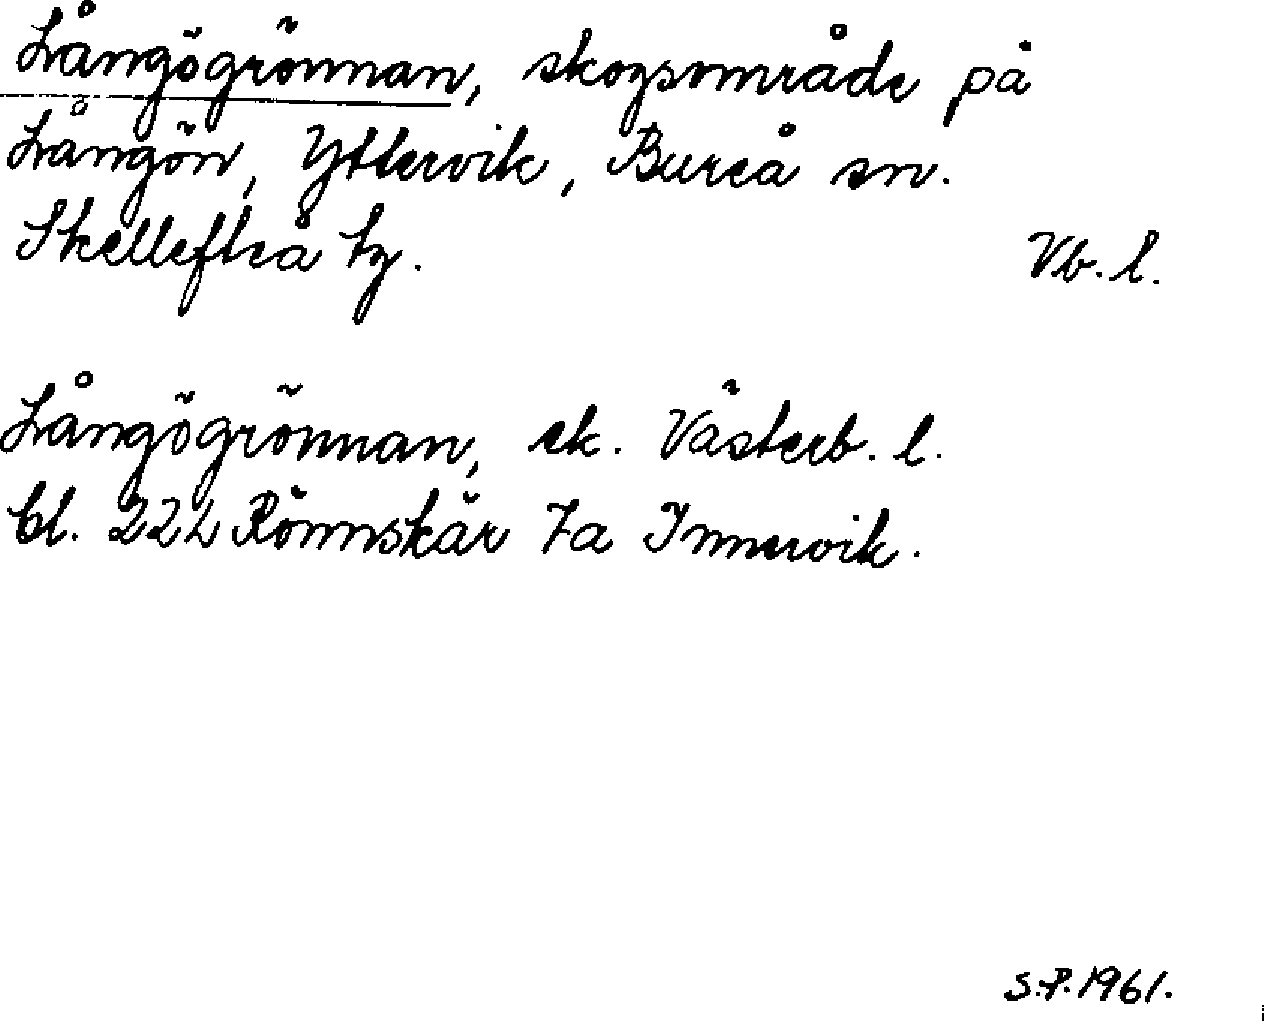 Långögrönnan, skogsområde på
Långön, Yttervik, Bureå sn.
Skellefteå tg. Vb. l.
Långögrönnan, ek. Västerb. l.
bl. 222 Rönnskär 7a Innervik.
S.P. 1961.